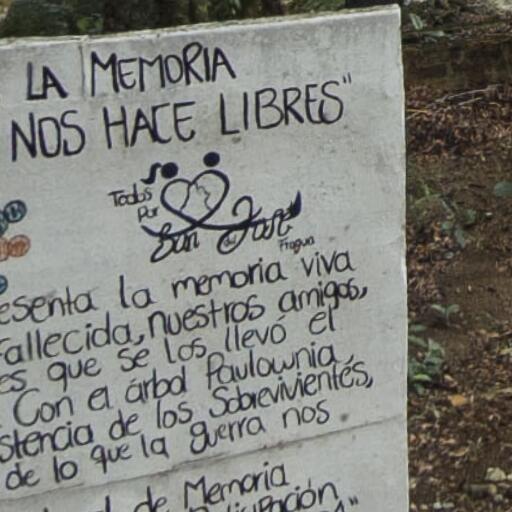 LA MEMORIA
NOS HACE LIBRES"
Todos
Por
San del José
Fragua
esenta la memoria viva
fallecida, nuestros amigos,
es que se los llevó el
Con el árbol Paulownia,
stencia de los Sobrevivientes,
de lo que la guerra nos
de Memoria